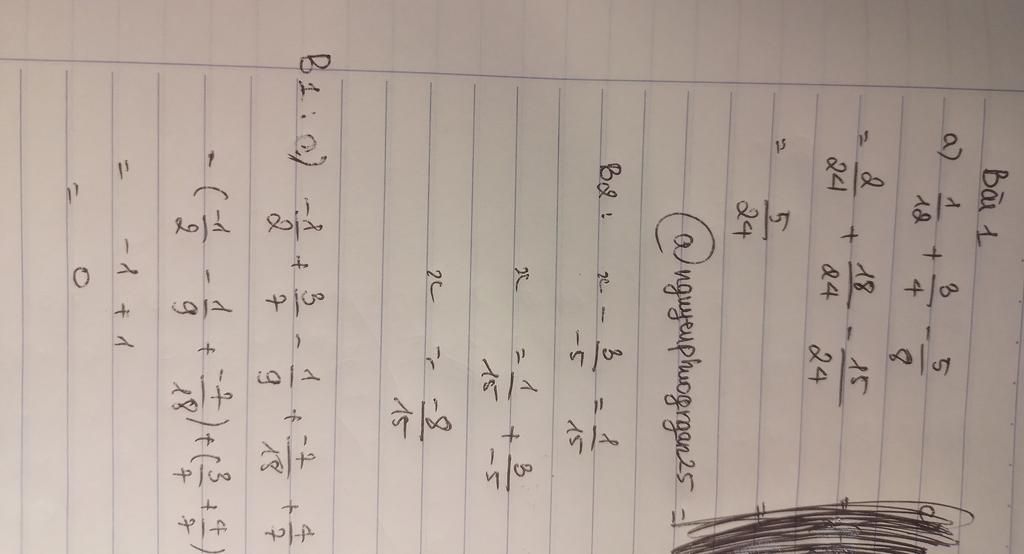 Bài 1
a) 1/12 + 3/4 - 5/8
= 2/24 + 18/24 - 15/24
= 5/24
@nguyenphuogngan25
B2: x - 3/-5 = 1/15
x = 1/15 + 3/-5
x = -8/15
B1: a) -1/2 + 3/7 - 1/9 + -7/18 + 4/7
= (-1/2 - 1/9 + -7/18) + (3/7 + 4/7)
= -1 + 1
= 0